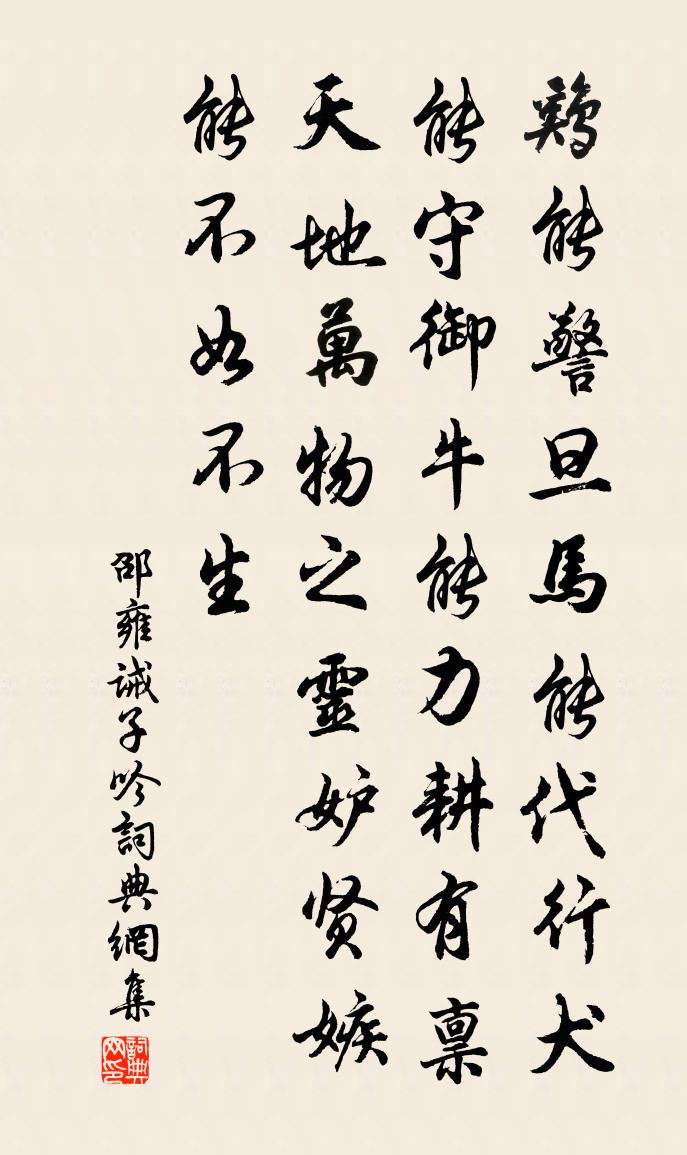 鷄能警旦馬能代行犬
能守御牛能力耕有禀
天地萬物之靈妒贤嫉
能不如不生
邵雍诫子吟詞典網集
詞典网印